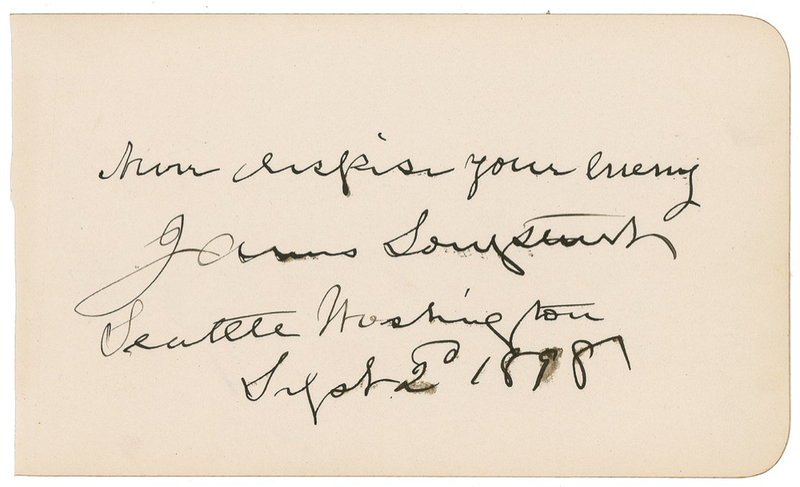 Never despise your enemy
James Longstreet
Seattle Washington
Sept 2d 1898